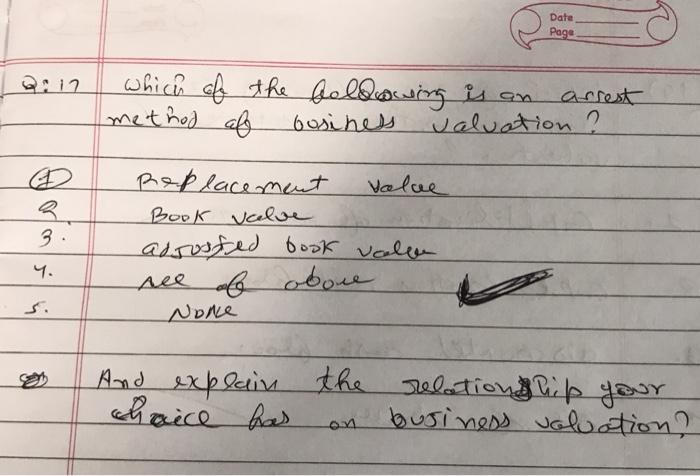 Date
Page
Q:17 which of the following is an assest
method of business valuation?
1 Replacement value
2. Book value
3. adjusted book value
4. All of above
5. NONE
And explain the relationship your
choice has on business valuation?